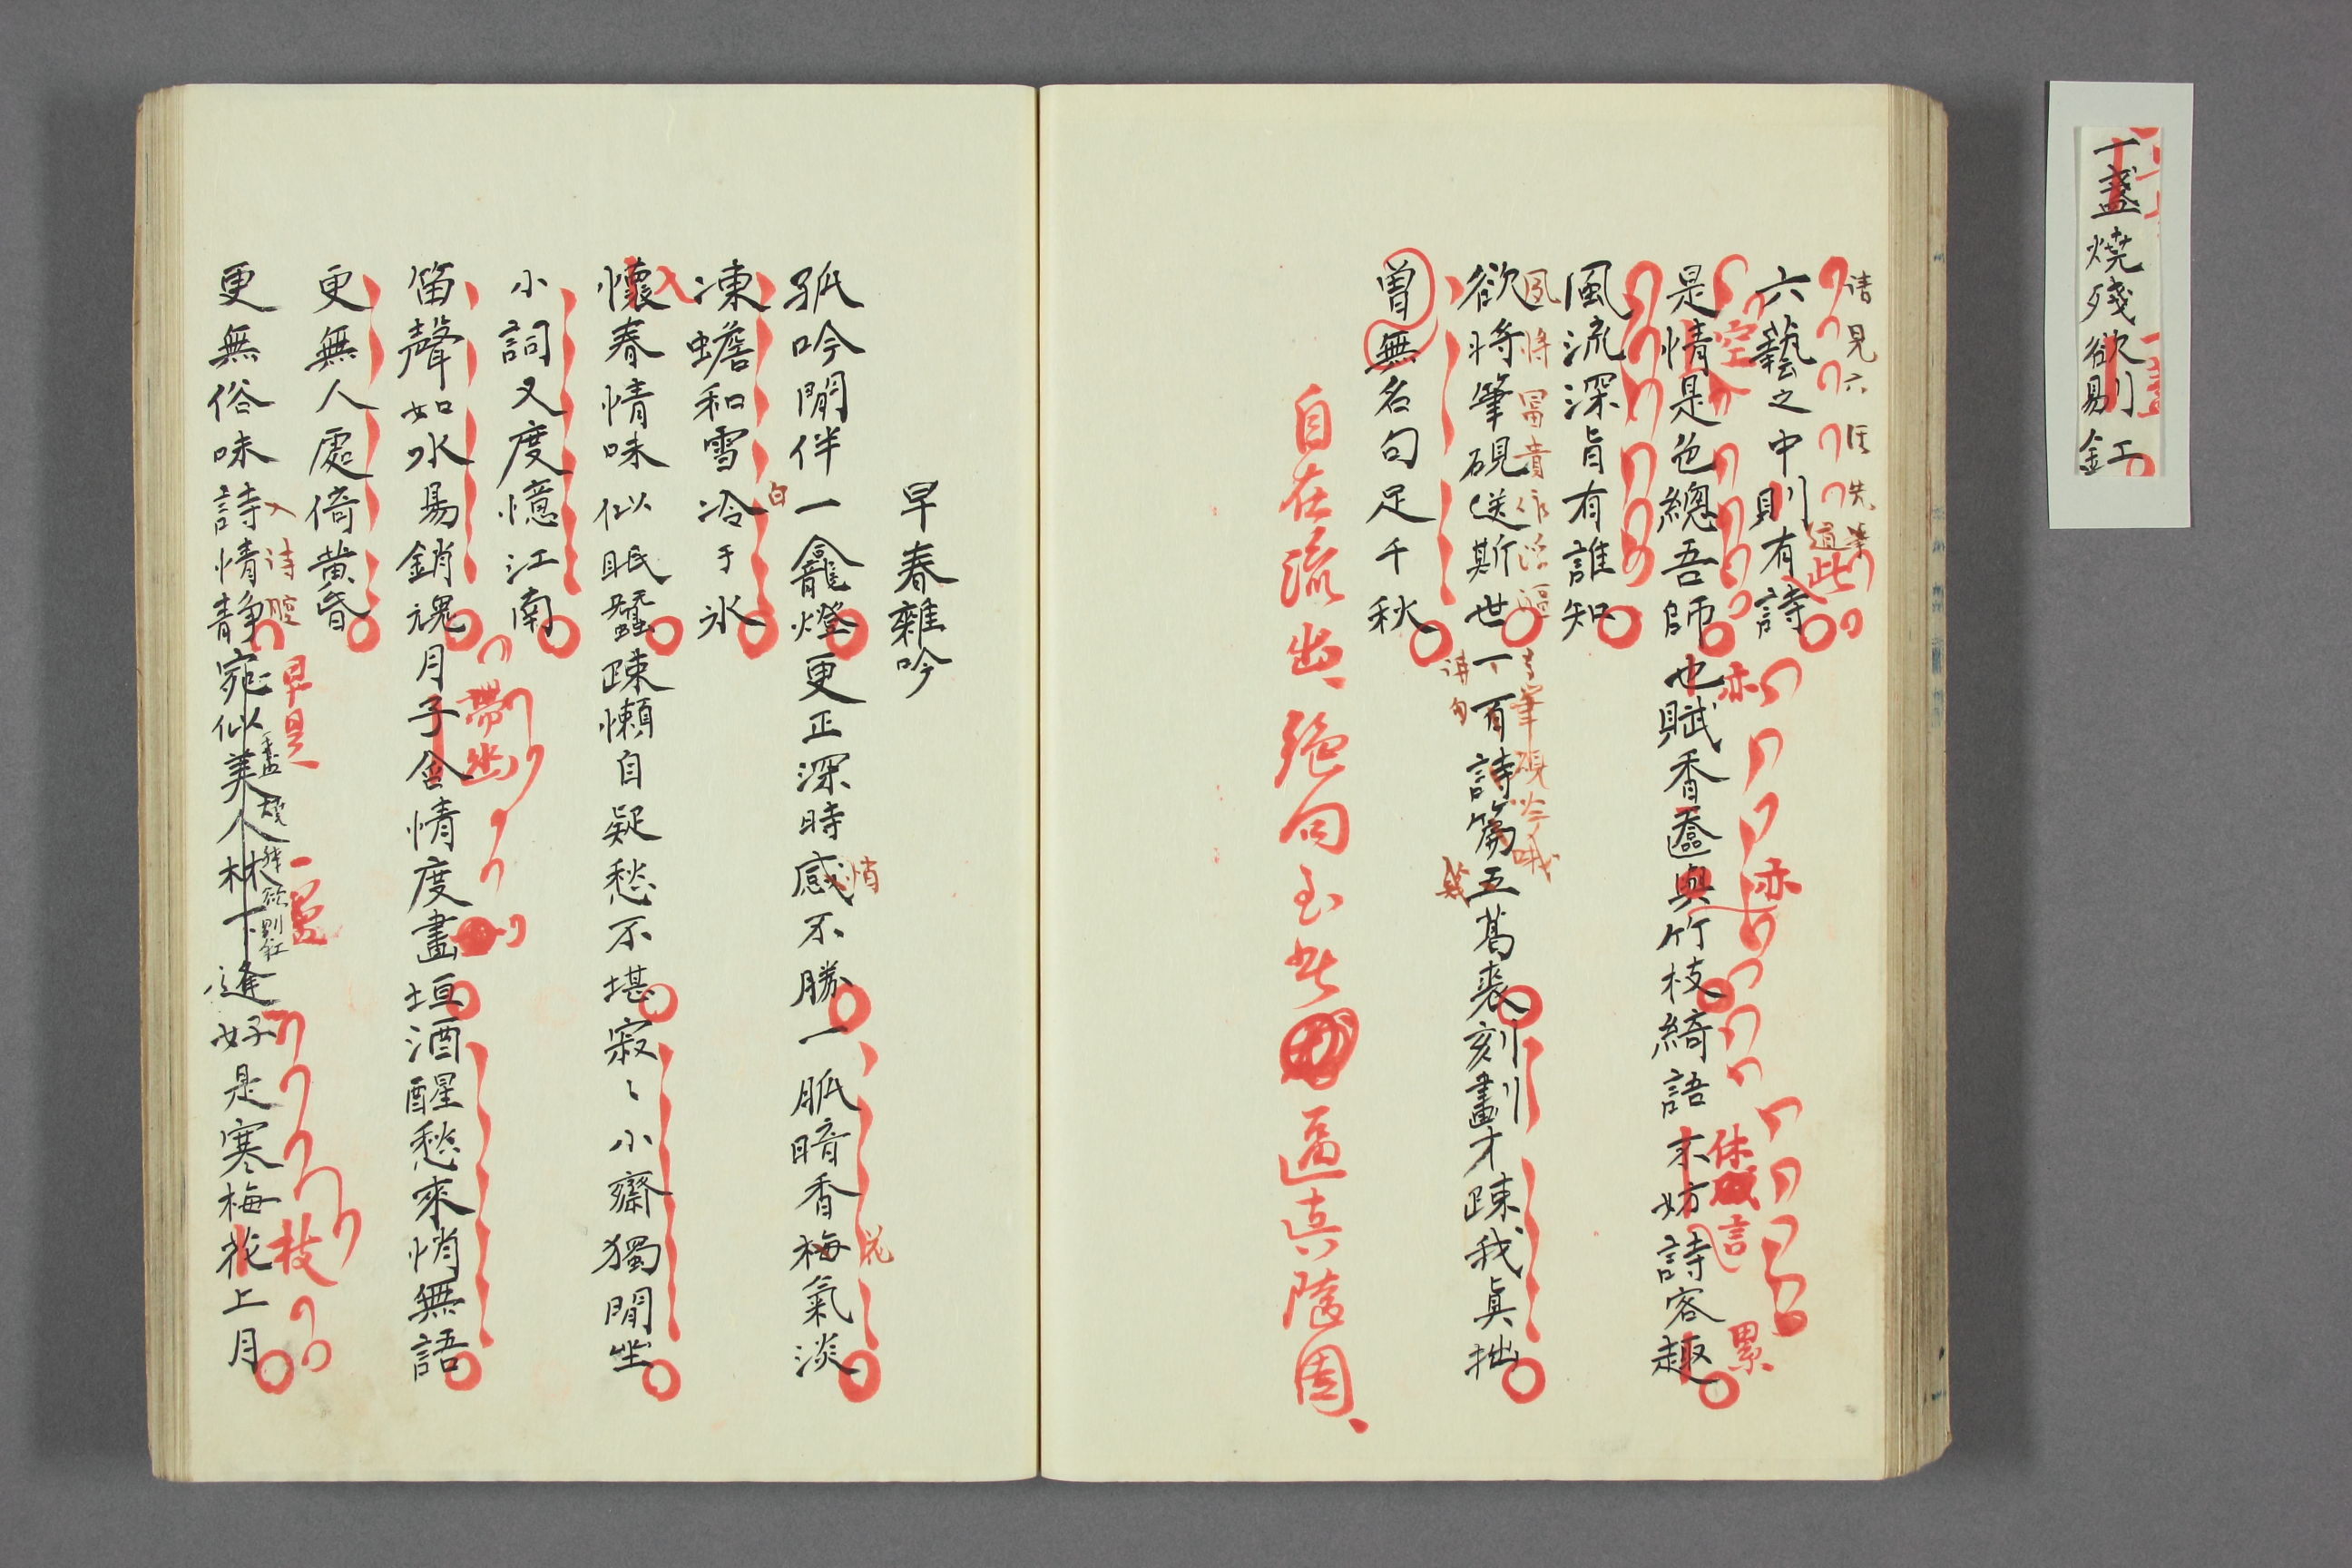 一盞燒殘欲剔釭
六藝之中則有詩
是情是色總吾師也賦香奩與竹枝綺語不妨詩客趣
風流深旨有誰知
欲將筆硯送斯世一百詩篇五葛裘刻劃才疎我眞拙
曽無名句足千秋
自在流出絶句至此 逼眞隨園
早春雜吟
孤吟閒伴一龕燈更正深時感不勝一脈暗香梅氣淡
凍蟾和雪冷于氷
懷春情味似眠蠶疎懶自疑愁不堪寂〻小齋獨閒坐
小詞又度憶江南
笛聲如水易銷魂月子含情度畫垣酒醒愁來悄無語
更無人處倚黄昏
更無俗味詩情靜宛似美人林下逢好是寒梅花上月
空
亦
亦
休
言
累
此
悄
花
白
帶出
入詩腔
早是
一盞
枝